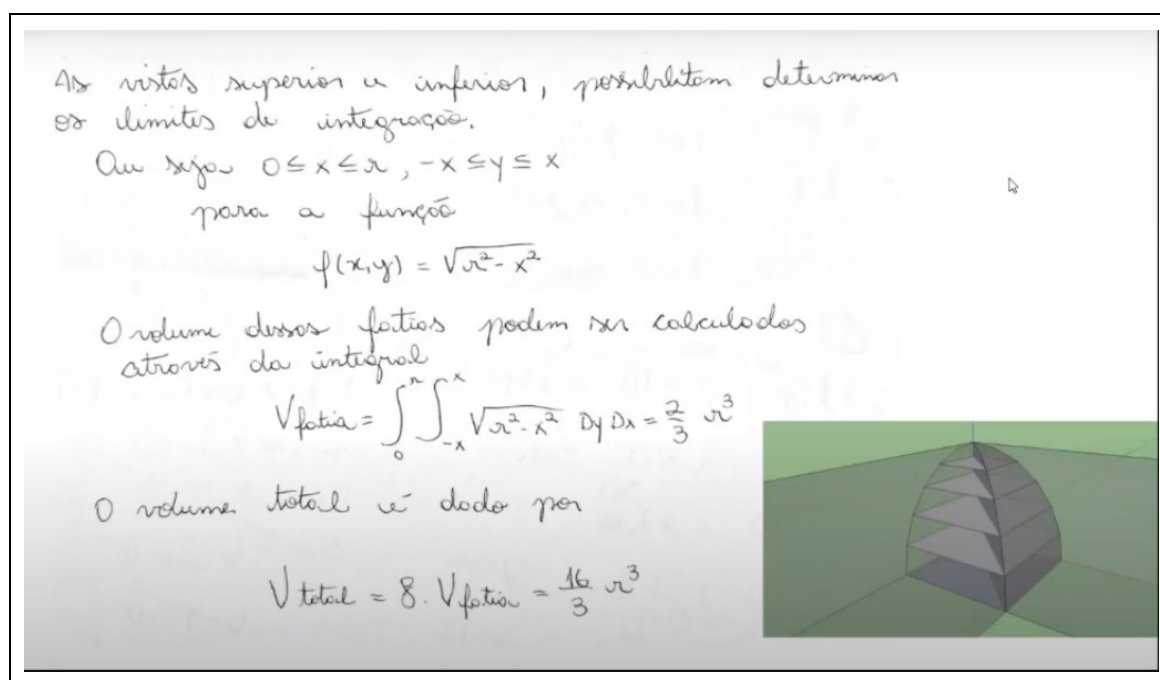 As vistas superior e inferior, possibilitam determinar
os limites de integração.
Ou seja 0 ≤ x ≤ r, -x ≤ y ≤ x
para a função
f(x,y) = √r²-x²
O volume dessas fatias podem ser calculados
através da integral
V fatia = ∫₀ʳ ∫₋ₓˣ √r²-x² Dy Dx = 2/3 r³
O volume total é dado por
V total = 8. V fatia = 16/3 r³